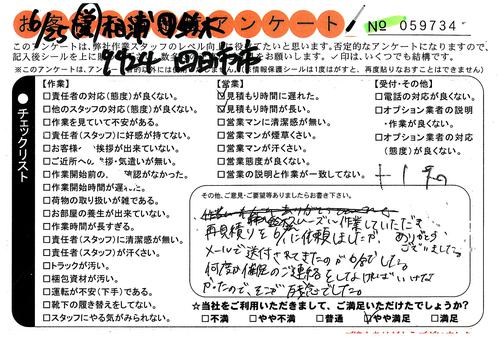 お客様アンケート
No 059734
6/25
このアンケートは、弊社作業スタッフのレベル向上に役立てたいと思います。否定的なアンケートになりますので、
記入後シールを上に お願いします。✓印は、いくつでも結構です。
個人情報保護シールは1度はがすと、再度貼りなおすことはできません)
●チェックリスト
【作業】
□責任者の対応(態度)が良くない。
□他のスタッフの対応(態度)が良くない。
□作業を見ていて不安がある。
□責任者(スタッフ)に好感が持てない。
□お客様 挨拶が出来ていない。
□ご近所へ 挨拶・気遣いが無い。
□作業開始前の 確認がなかった。
□作業開始時間が遅れた。
□荷物の取り扱いが雑である。
□お部屋の養生が出来ていない。
□作業時間が長すぎる。
□責任者(スタッフ)に清潔感が無い。
□責任者(スタッフ)が汗くさい。
□トラックが汚い。
□梱包資材が汚い。
□運転が不安(下手)である。
□靴下の履き替えをしてない。
□スタッフにやる気がみられない。
【営業】
☑見積もり時間に遅れた。
□見積もり時間が長い。
□営業マンに清潔感が無い。
□営業マンが煙草くさい。
□営業マンが汗くさい。
□営業態度が良くない。
□営業の説明と作業が一致してない。
【受付・その他】
□電話の対応が良くない。
□オプション業者の説明
・作業が良くない。
□オプション業者の対応
(態度)が良くない。
その他、ご意見・ご要望等ありましたらお書き下さい。
スムーズに作業していただき
ありがとう
ございました。
再見積りを 依頼しましたが、
メールで送付されてきたのが
何度か催促のご連絡をしなければいけな
かったので、そこが残念でした。
★当社をご利用いただきまして、ご満足いただけたでしょうか?
□不満 □やや不満 □普通 ☑やや満足 □満足